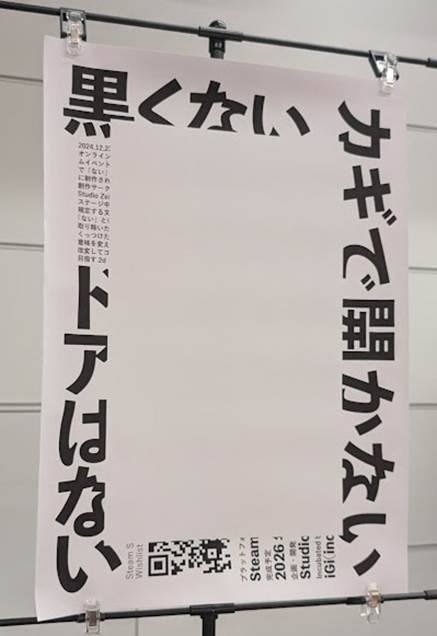 黒くない
カギで開かない
ドアはない
2024.12.2
オンライン
ムイベント
で「ない」
に制作され
創作サーク
Studio Zai
ステージ中
規定する文
「ない」と
取り除いた
くっつけた
意味を変え
改変してゴ
目指す 2d
Steam S
Wishlist
プラットフォ
Steam
完成予定
2026
企画・開発
Studio
Incubated b
iGi(inc